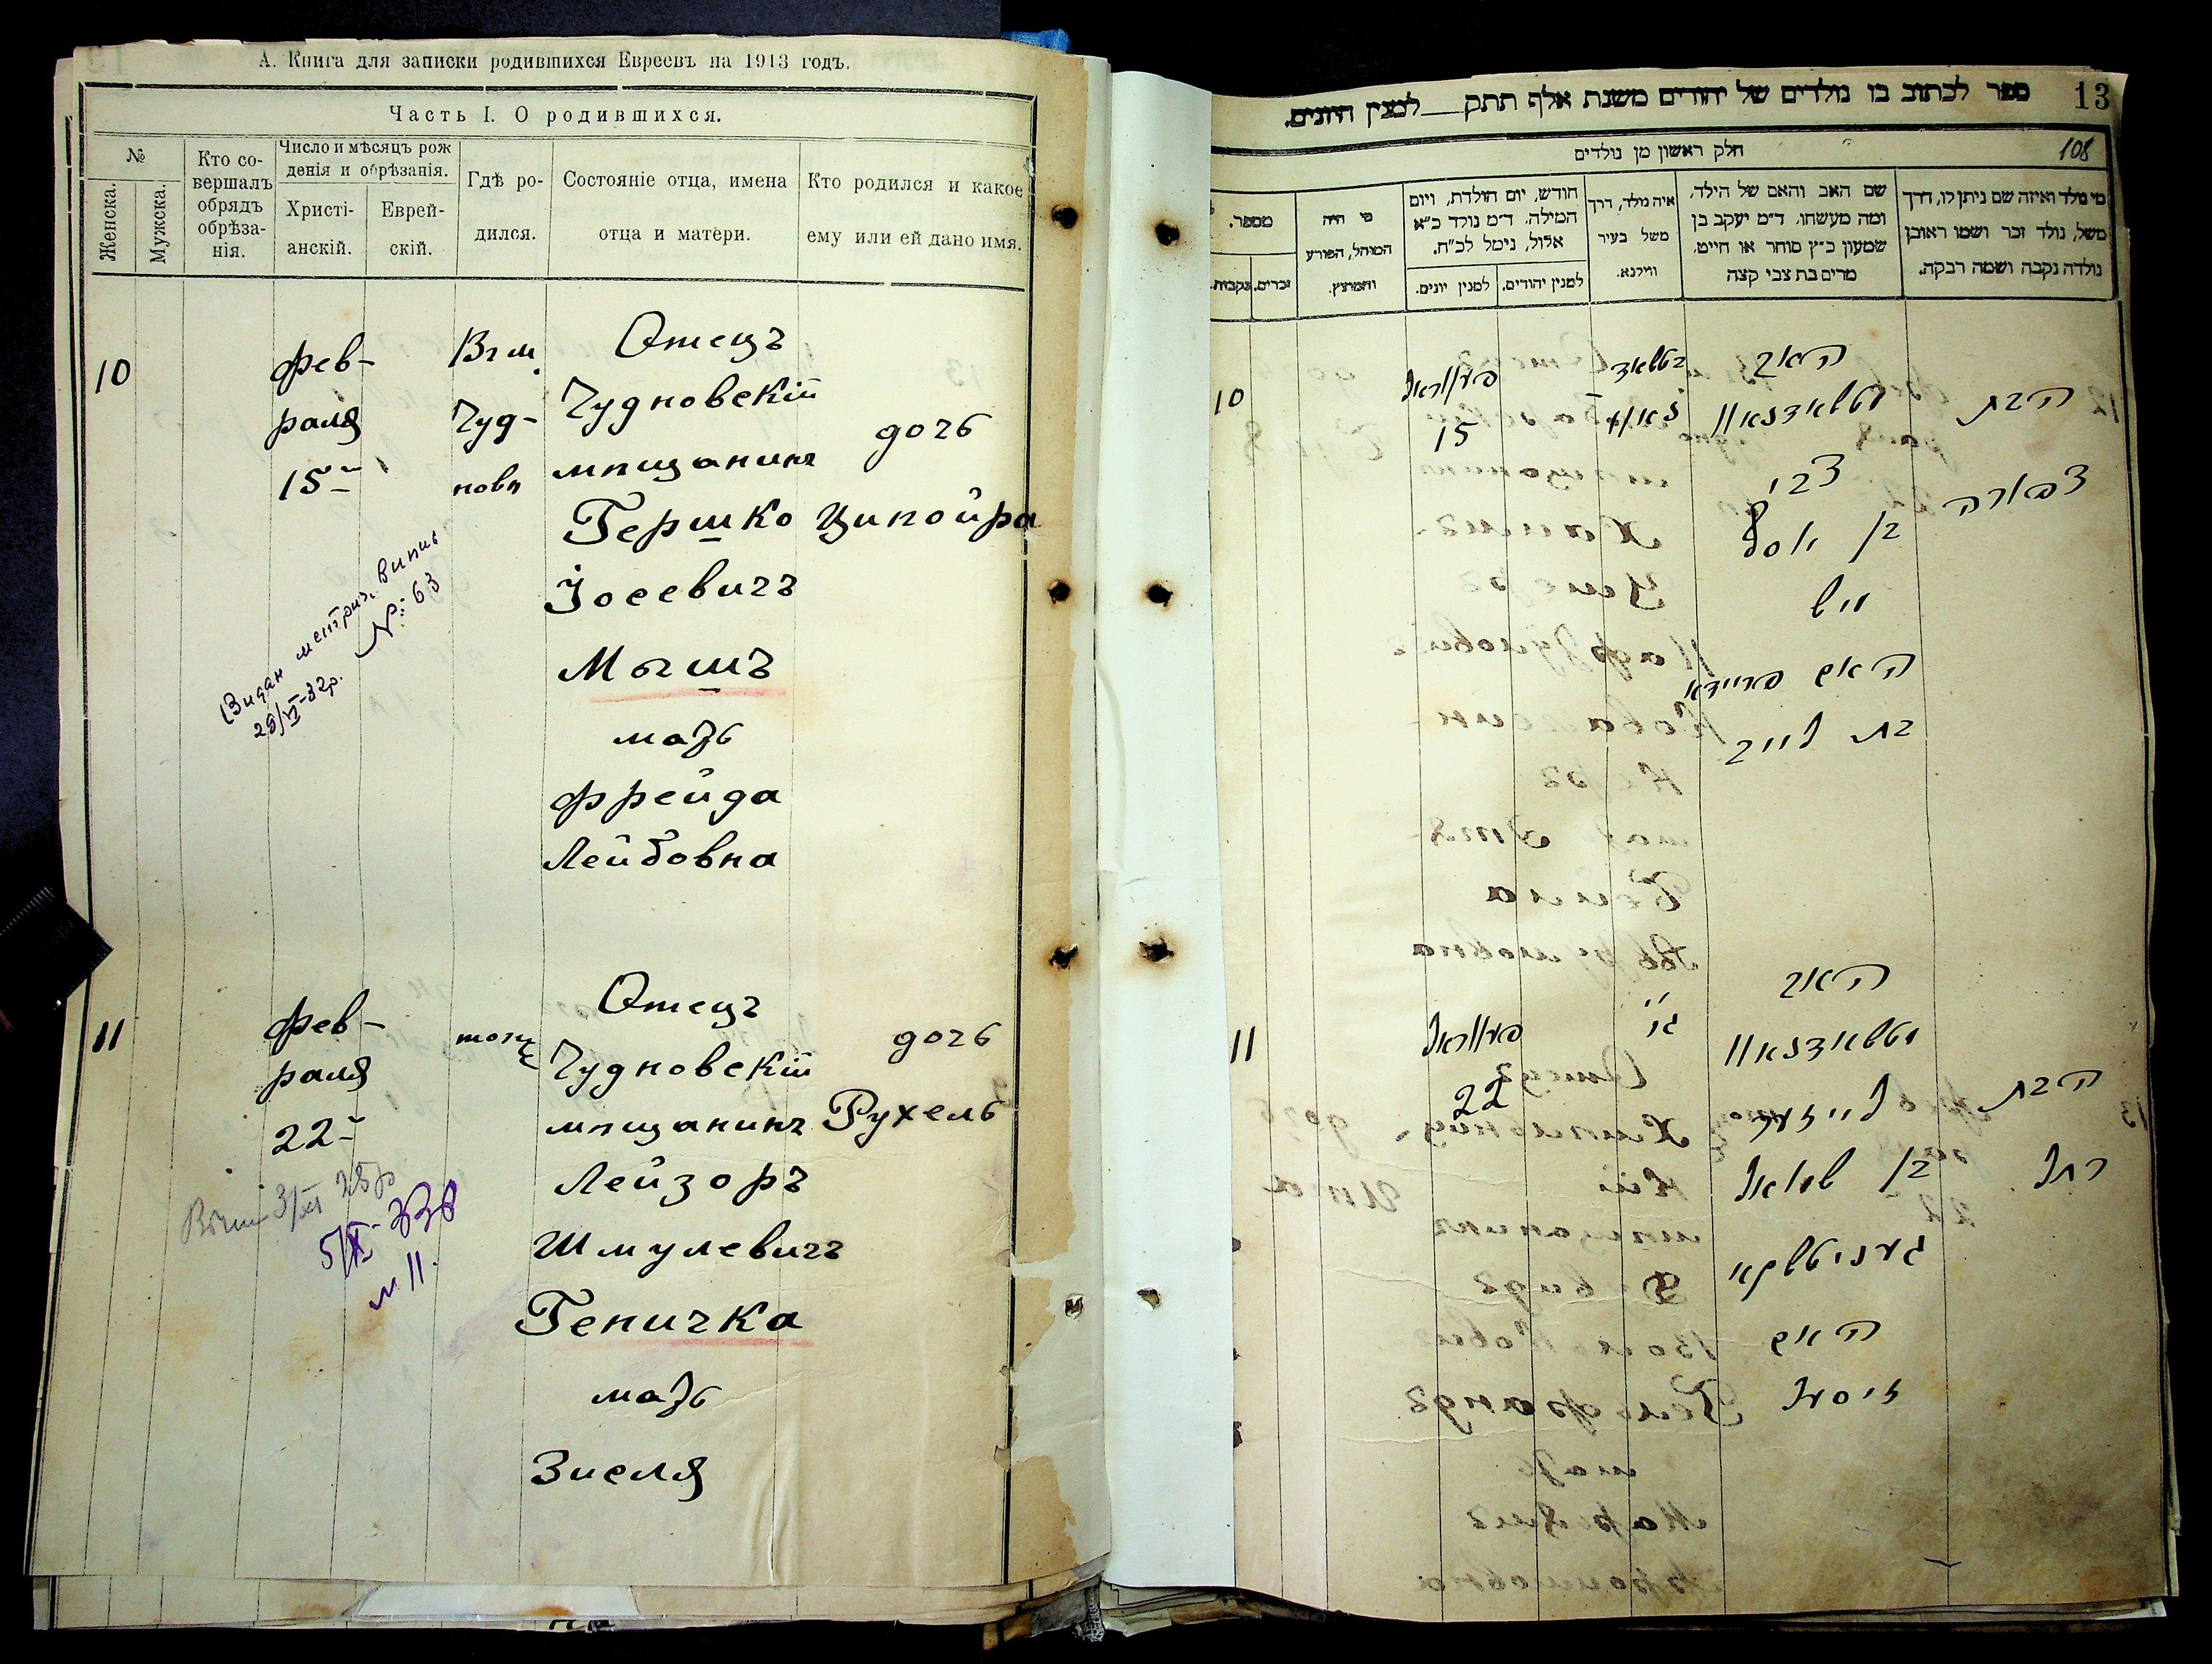 А. Книга для записки родившихся Евреевъ на 1913 годъ.
Часть I. О родившихся.
№
Женска.
Мужска.
Кто со-
вершалъ
обрядъ
обрѣза-
нія.
Число и мѣсяцъ рож
денія и обрѣзанія.
Христі-
анскій.
Еврей-
скій.
Гдѣ ро-
дился.
Состояніе отца, имена
отца и матери.
Кто родился и какое
ему или ей дано имя.
10
Фев-
раля
15
Въ м.
Чуд-
новѣ
Отецъ
Чудновскій
мѣщанинъ
Гершко
Іосевичъ
Мышъ
мать
Фрейда
Лейбовна
дочь
Ципойра
Видан метрич. випис
29/VI-32р. №: 63
11
Фев-
раля
22
тоже
Отецъ
Чудновскій
мѣщанинъ
Лейзоръ
Шмулевичъ
Геничка
мать
Зисля
дочь
Рухель
№ 11.
ספר לכתוב בו נולדים של יהודים משנת אלף תתק למנין היונים.
13
108
חלק ראשון מן נולדים
מי נולד ואיזה שם ניתן לו, דרך
משל, נולד זכר ושמו ראובן
נולדה נקבה ושמה רבקה.
שם האב והאם של הילד,
ומה מעשהו. ד״מ יעקב בן
שמעון כ״ץ סוחר או חייט,
מרים בת צבי קצה
איה נולד, דרך
משל בעיר
ווילנא.
חודש, יום הולדת, ויום
המילה. ד״מ נולד כ״א
אלול, נימל לכ״ח.
למנין יהודים.
למנין יונים.
מי היה
המוהל, הפורע
והמוצץ.
מספר.
זכרים.
נקבות.
10
פעווראל
15
האב
צבי
בן יוסף
מיש
האם פריידא
בת לייב
הבת
צפורה
11
פעווראל
22
האב
לייזער
בן שמואל
געניטשקא
האם
זיסעל
הבת
רחל